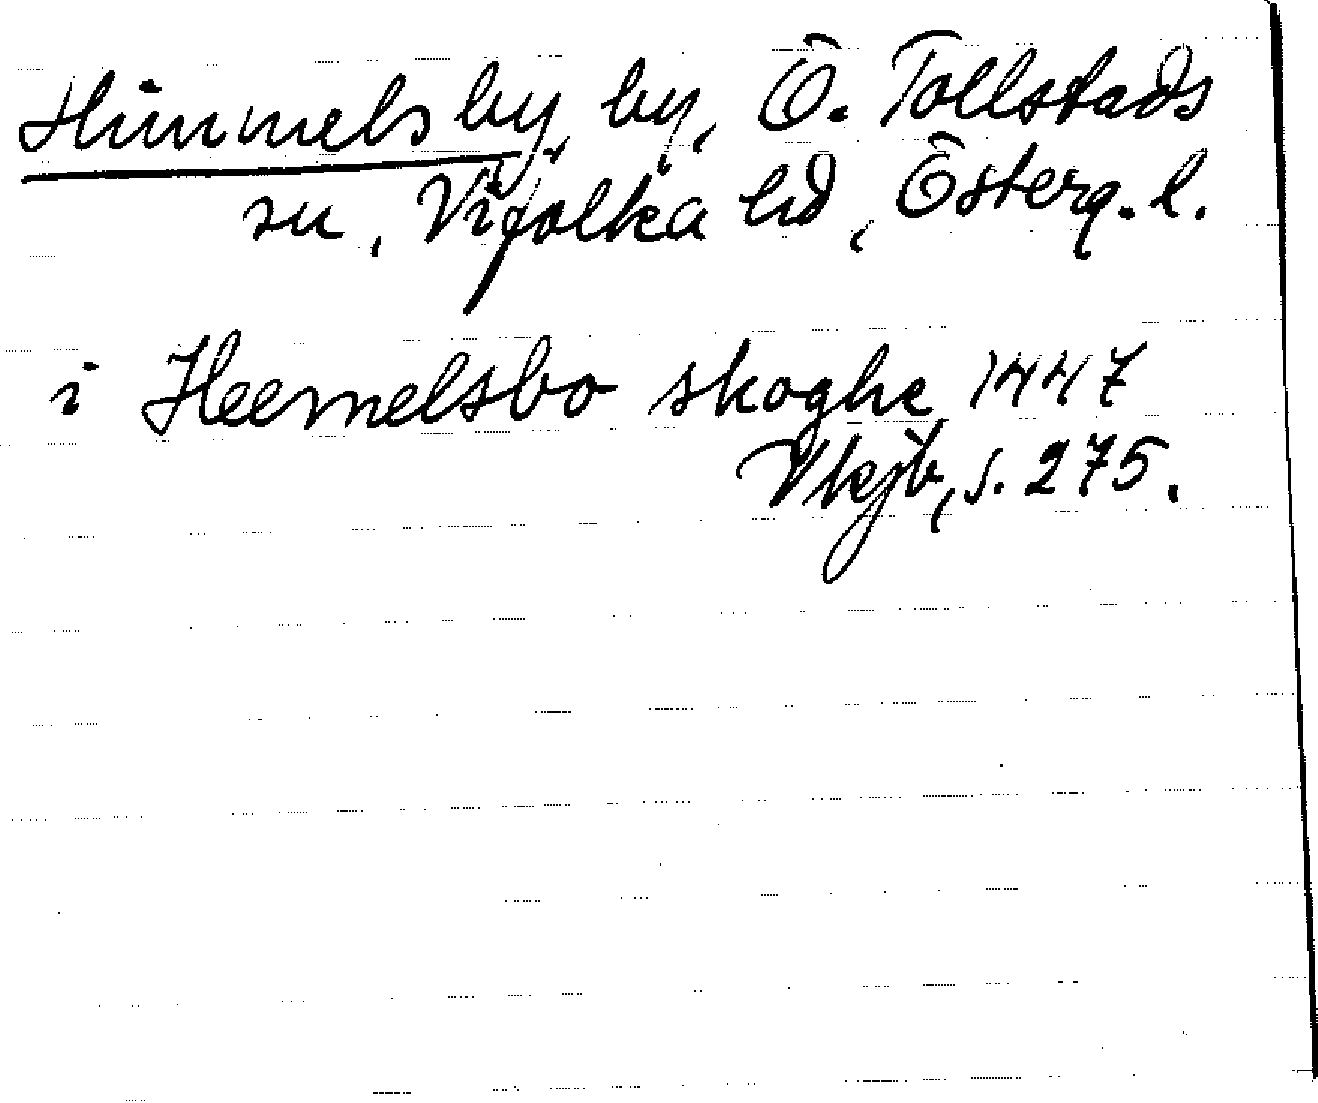 Himmelsby, by, Ö. Tollstads
sn, Vifolka hd, Österg. l.
i Heemelsbo skoghe 1447
Vkjb, s. 275.